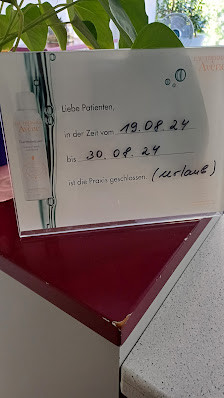 Avène
Liebe Patienten,
in der Zeit vom 19.08.24
bis 30.08.24
ist die Praxis geschlossen. (Urlaub)